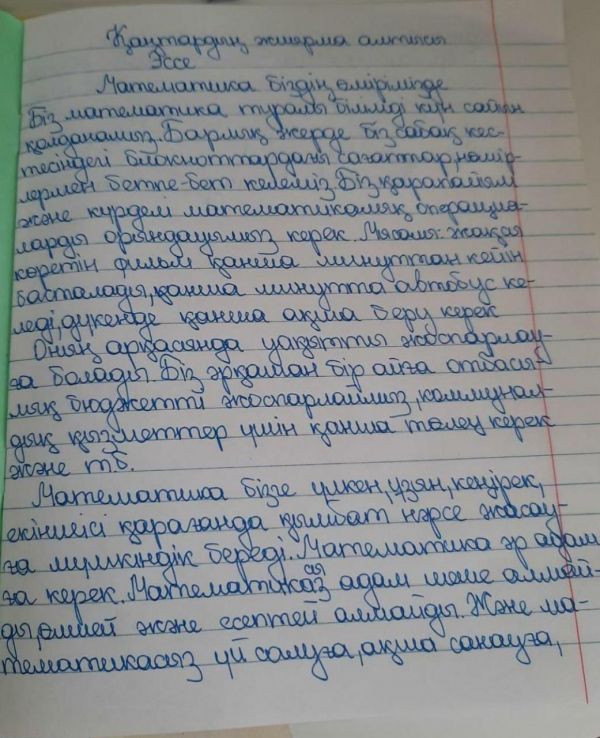 Қаңтардың жиырма алтысы
Эссе
Математика біздің өмірімізде
Біз математика туралы білімді күн сайын
қолданамыз. Барлық жерде біз сабақ кес-
тесіндегі блокноттардағы сағаттар, нөмір-
лермен бетпе-бет келеміз. Біз қарапайым
және күрделі математикалық операция-
ларды орындауымыз керек. Мысалы: жақсы
көретін фильм қанша минуттан кейін
басталады, қанша минутта автобус ке-
леді, дүкенде қанша ақша беру керек
Оның арқасында уақытты жоспарлау-
ға болады. Біз әрқашан бір айға отбасы-
лық бюджетті жоспарлаймыз, коммунал-
дық қызметтер үшін қанша төлеу керек
және т.б.
Математика бізге үлкен, ұзын, кеңірек,
екіншісі қарағанда қымбат нәрсе жасау-
ға мүмкіндік береді. Математика әр адам
ға керек. Математикасыз адам шеше алмай-
ды, өлшей және есептей алмайды. Және ма-
тематикасыз үй салуға, ақша санауға,